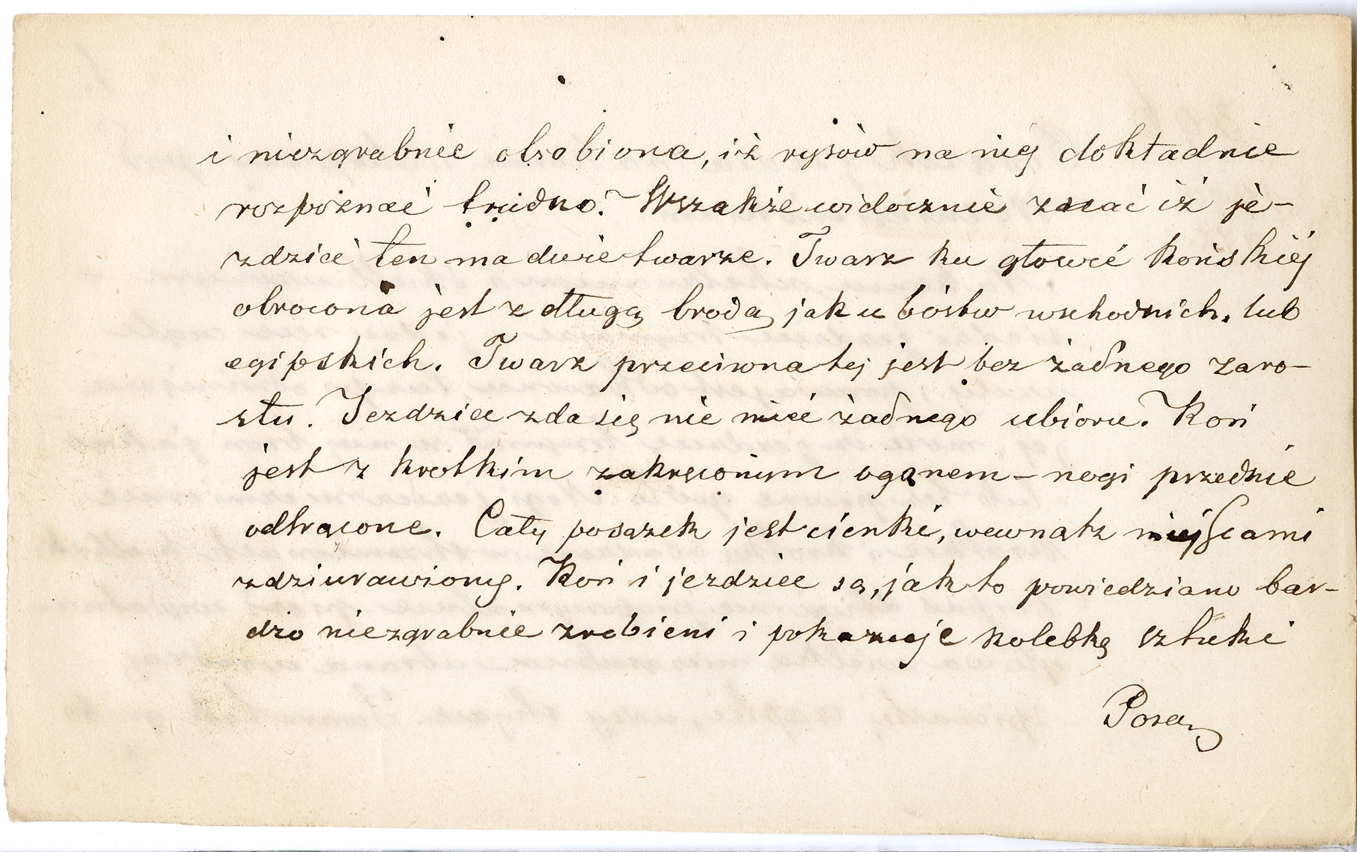 i niezgrabnie obrobiona, iż rysów na niej dokładnie
rozpoznać trudno. Wszakże widocznie znać iż je-
zdziec ten ma dwie twarze. Twarz ku głowie końskiéj
obrócona jest z długą brodą, jak u bóstw wschodnich, lub
egipskich. Twarz przeciwna téj jest bez żadnego zaro-
stu. Jezdziec zda się nie mieć żadnego ubioru. Koń
jest z krotkim zakręconym ogonem – nogi przednie
odtrącone. Cały posążek jest cienki, wewnątrz miejscami
zdziurawiony. Koń i jezdziec są, jak to powiedziano bar-
dzo niezgrabnie zrobieni i pokazuje kolebkę sztuki